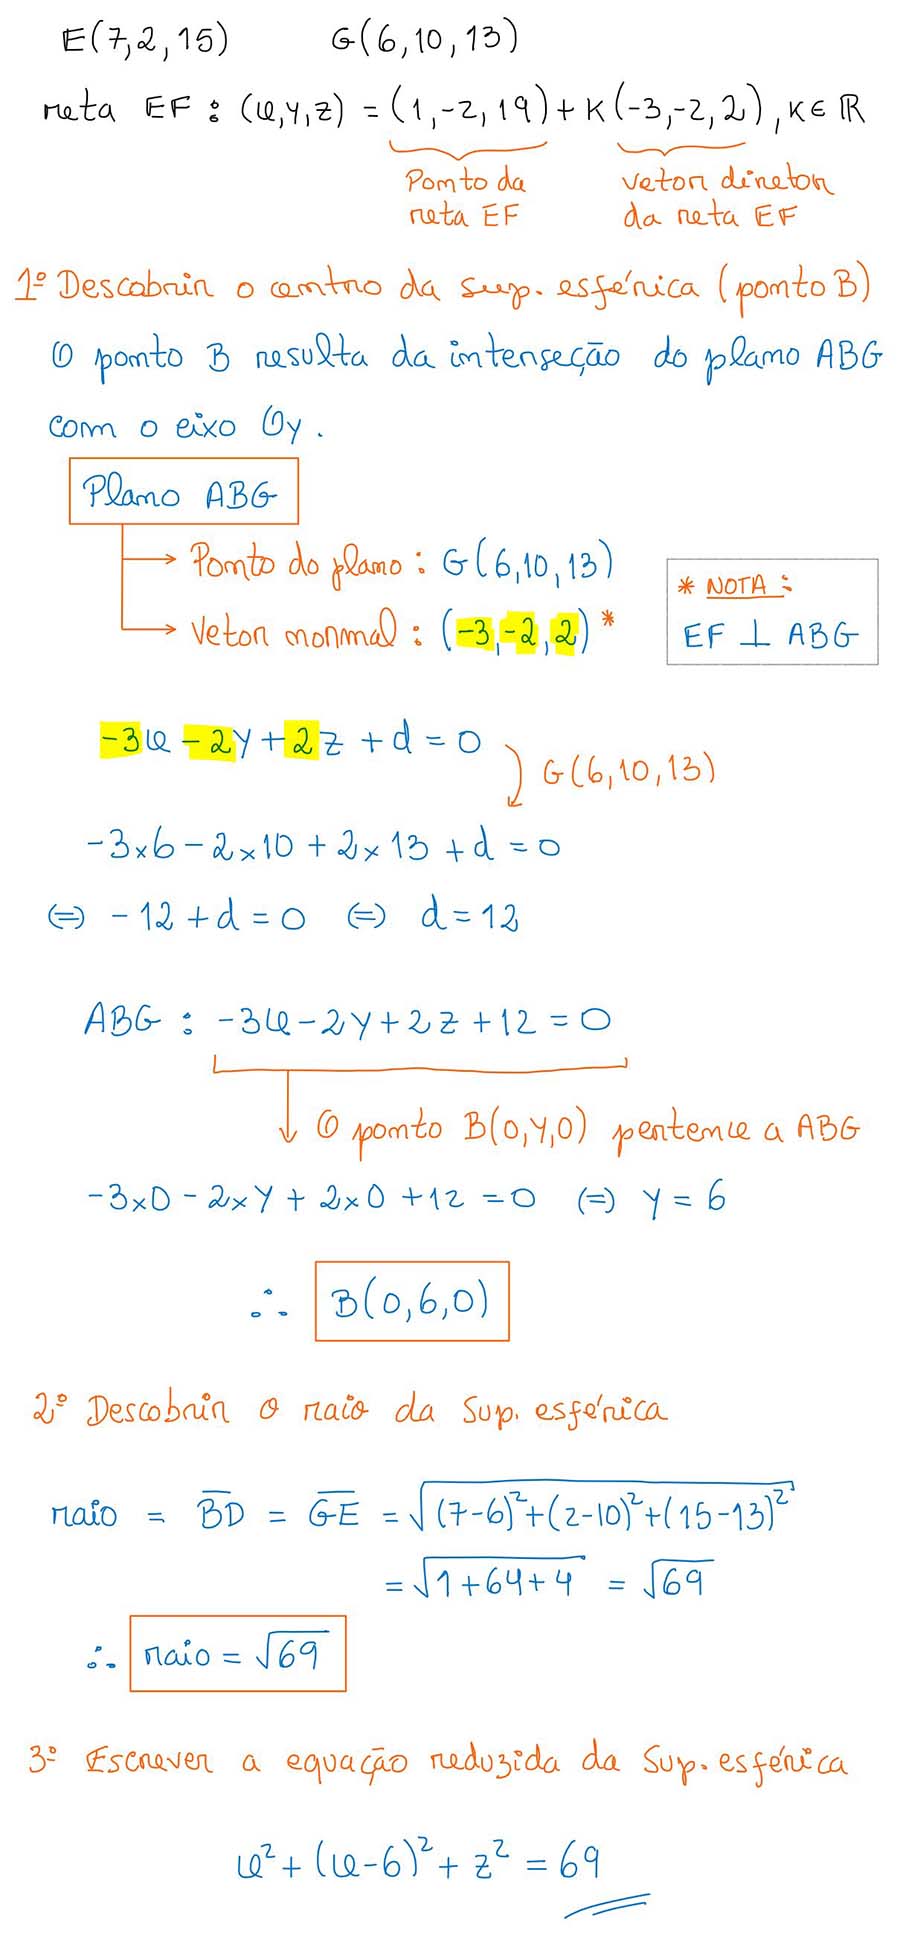 E(7,2,15) G(6,10,13)
reta EF : (x,y,z) = (1,-2,19) + K(-3,-2,2), K∈ℝ
Ponto da
reta EF
vetor diretor
da reta EF
1º Descobrir o centro da sup. esférica (ponto B)
O ponto B resulta da interseção do plano ABG
com o eixo Oy.
Plano ABG
→ Ponto do plano : G(6,10,13)
→ Vetor normal : (-3,-2,2) *
* NOTA :
EF ⊥ ABG
-3x -2y + 2z + d = 0
G(6,10,13)
-3×6 - 2×10 + 2×13 + d = 0
(=) -12 + d = 0 (=) d = 12
ABG : -3x - 2y + 2z + 12 = 0
O ponto B(0,y,0) pertence a ABG
-3×0 - 2×y + 2×0 + 12 = 0 (=) y = 6
∴ B(0,6,0)
2º Descobrir o raio da Sup. esférica
raio = B̅D̅ = G̅E̅ = √((7-6)²+(2-10)²+(15-13)²)
= √(1+64+4) = √69
∴ raio = √69
3º Escrever a equação reduzida da Sup. esférica
x² + (x-6)² + z² = 69